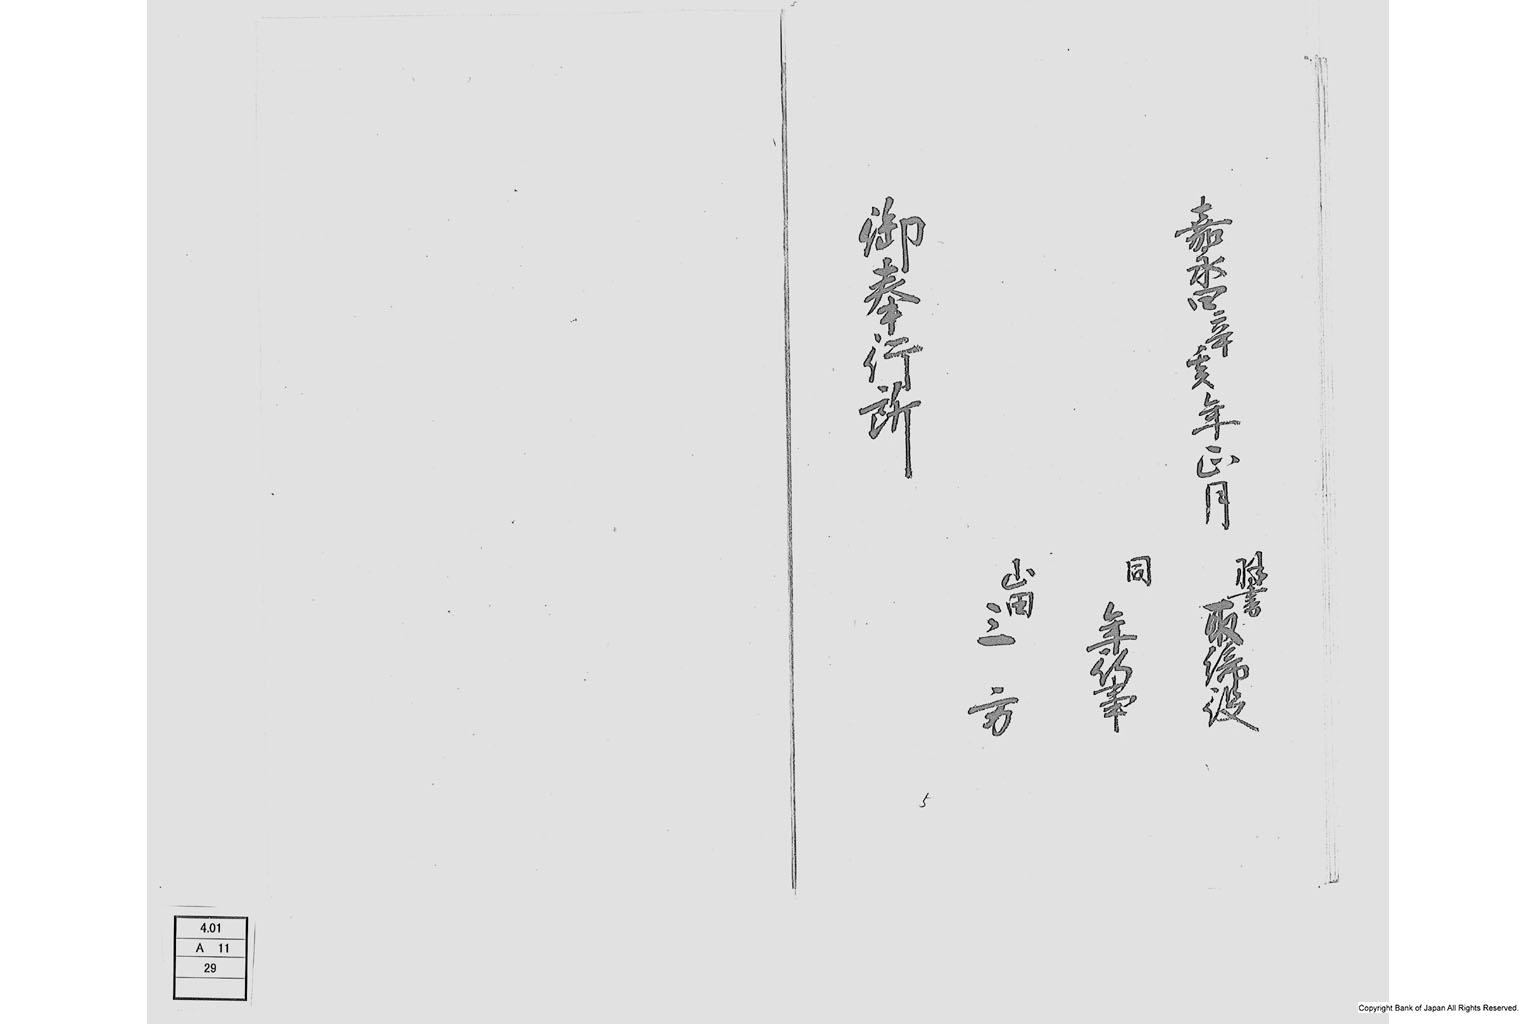 嘉永四辛亥年正月
羽書取締役
同 年行事
山田三方
御奉行所
5
4.01
A 11
29
Copyright Bank of Japan All Rights Reserved.